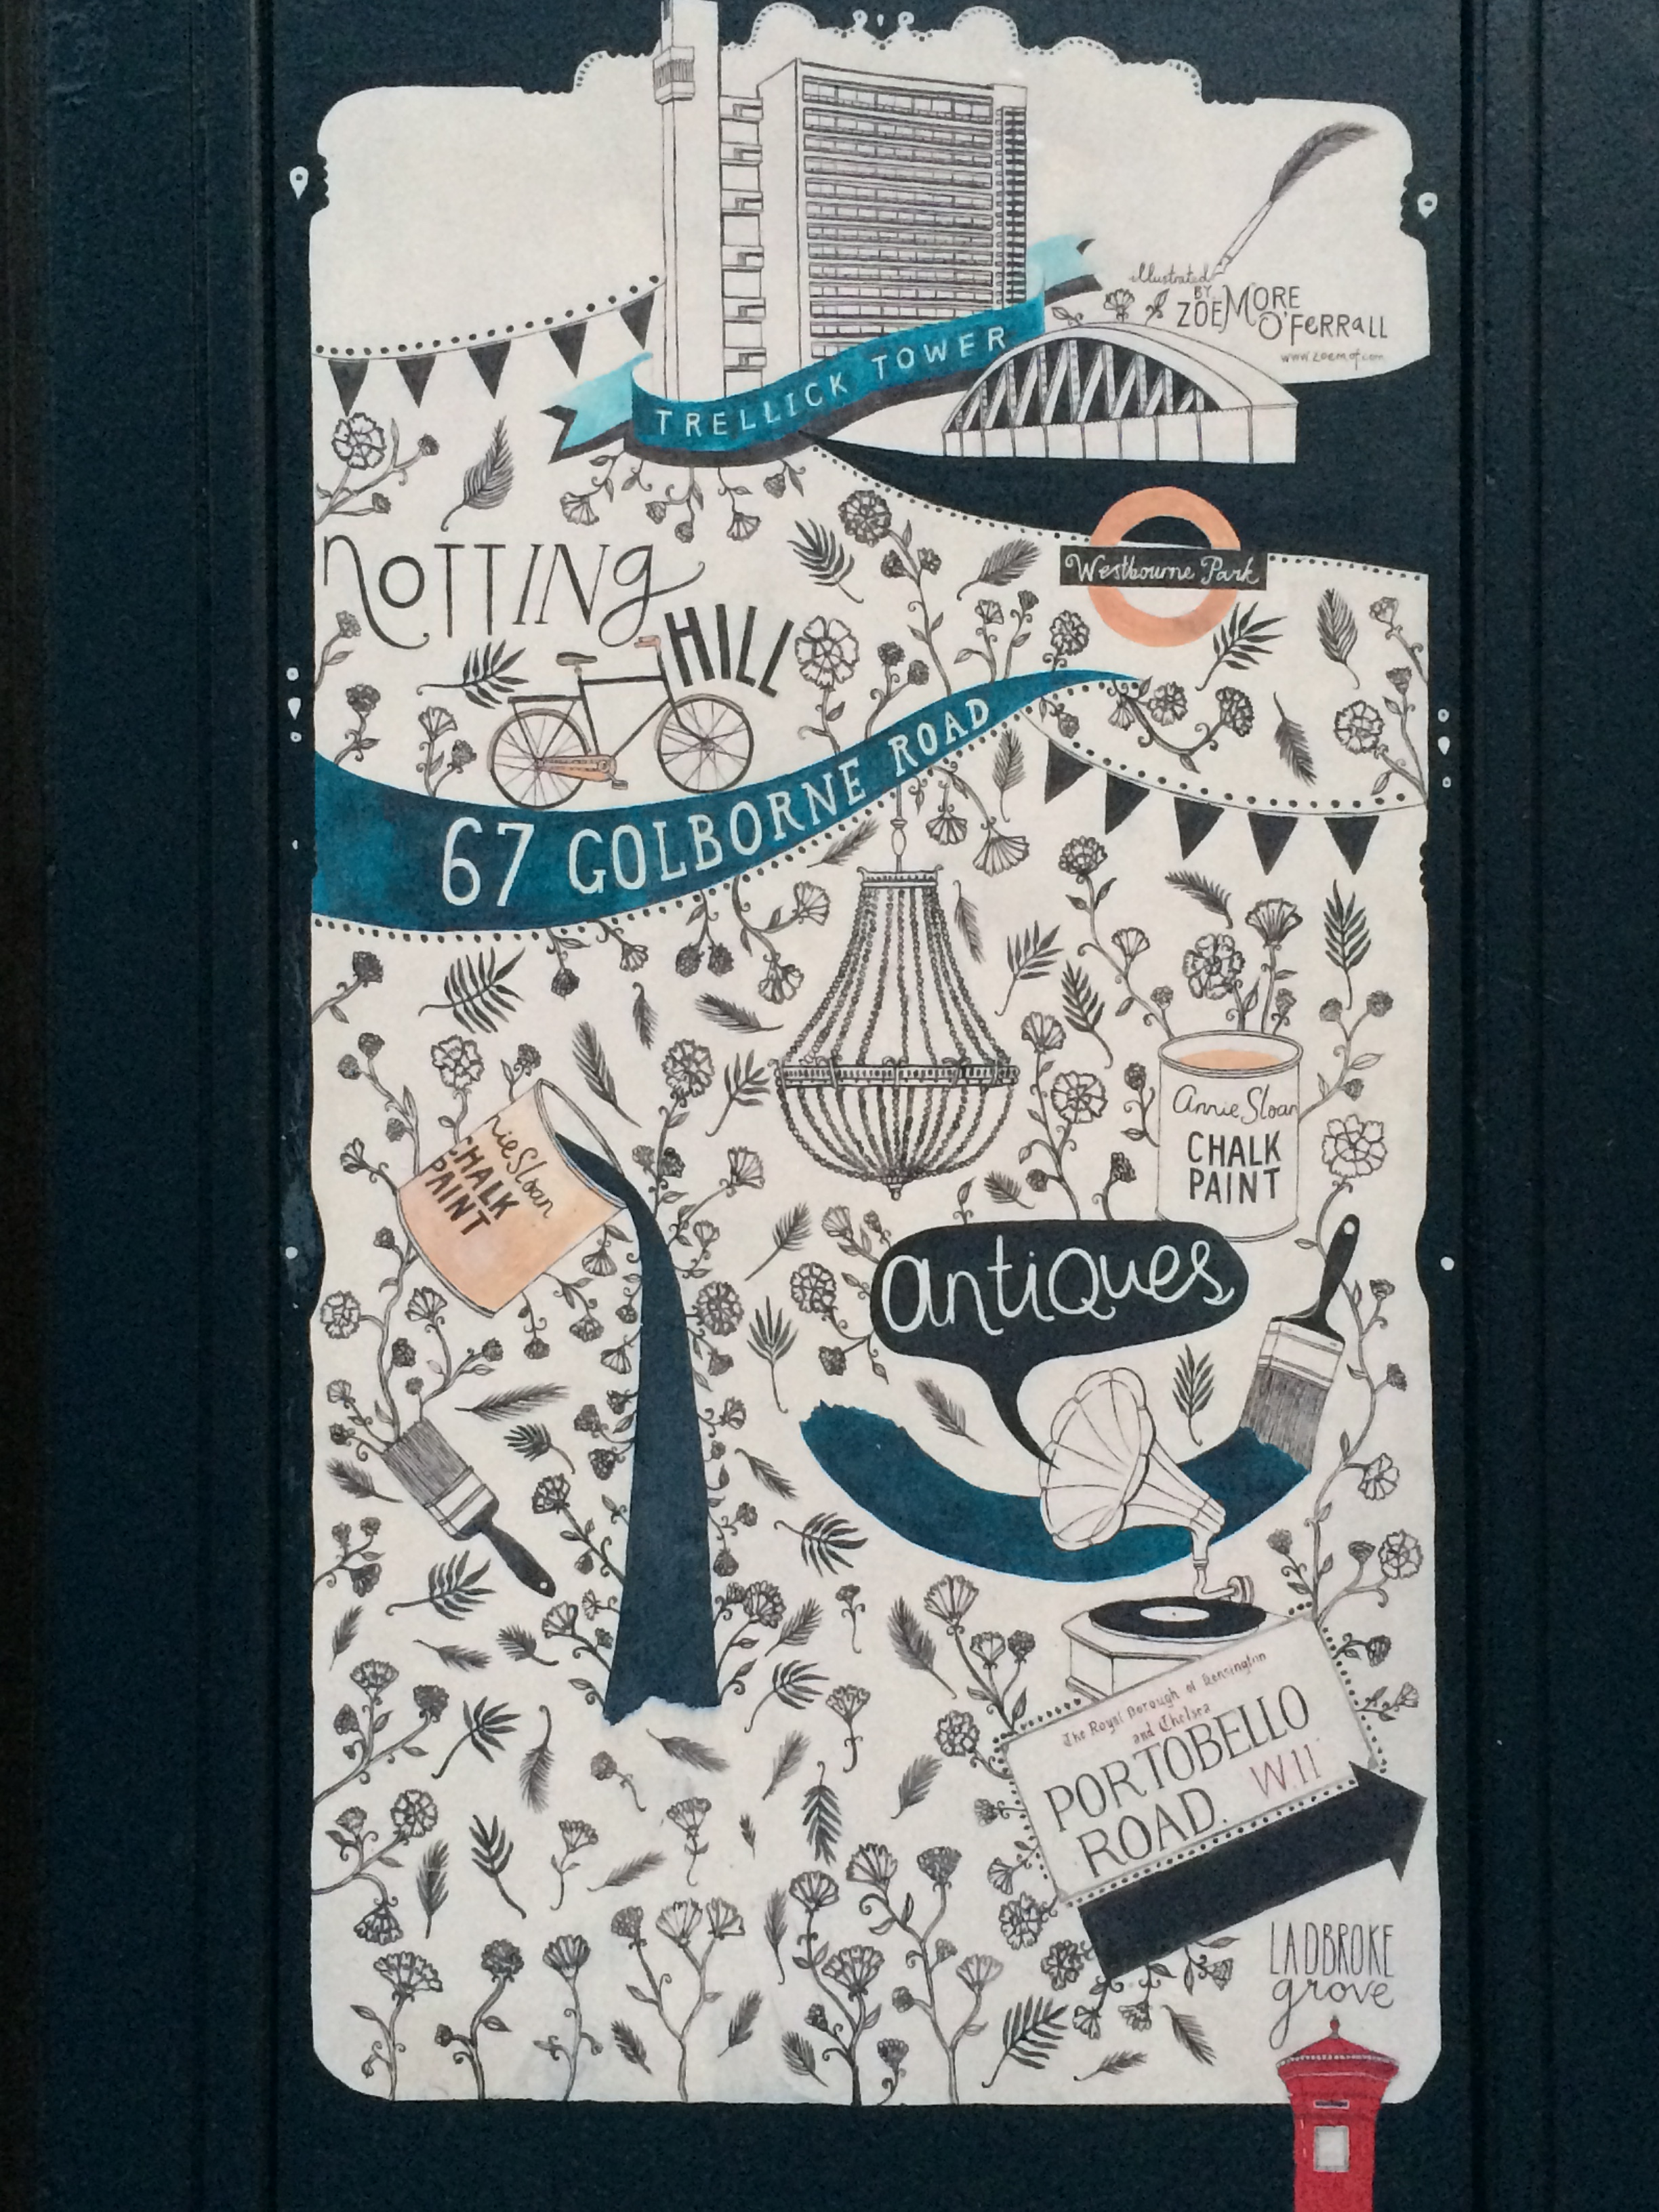 illustrated
BY
ZOE MORE
O'FERRALL
www.zoemof.com
TRELLICK TOWER
Westbourne Park
NOTTING
HILL
67 GOLBORNE ROAD
Annie Sloan
CHALK
PAINT
nie Sloan
CHALK
PAINT
antiques
The Royal Borough of Kensington
and Chelsea
PORTOBELLO
ROAD. W.11
LADBROKE
grove